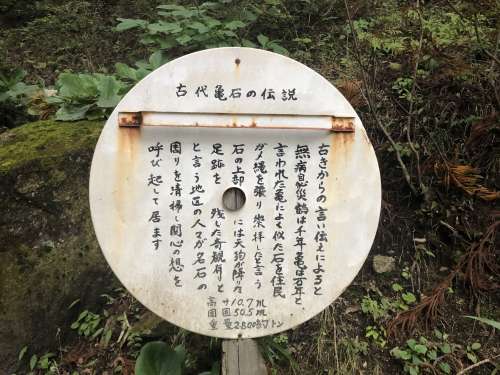 古代亀石の伝説
古きからの言い伝えによると
無病自然災鶴は千年亀は万年と
言われた亀によく似た石を住民
がメ縄を張り崇拝したと言う
石の上部には天狗が降りた
足跡を残した奇観有り
と言う地区の人々が名石の
囲りを清掃し関心の想を
呼び起して居ます
高サ10.7m
周囲50.5m
重量2800約トン